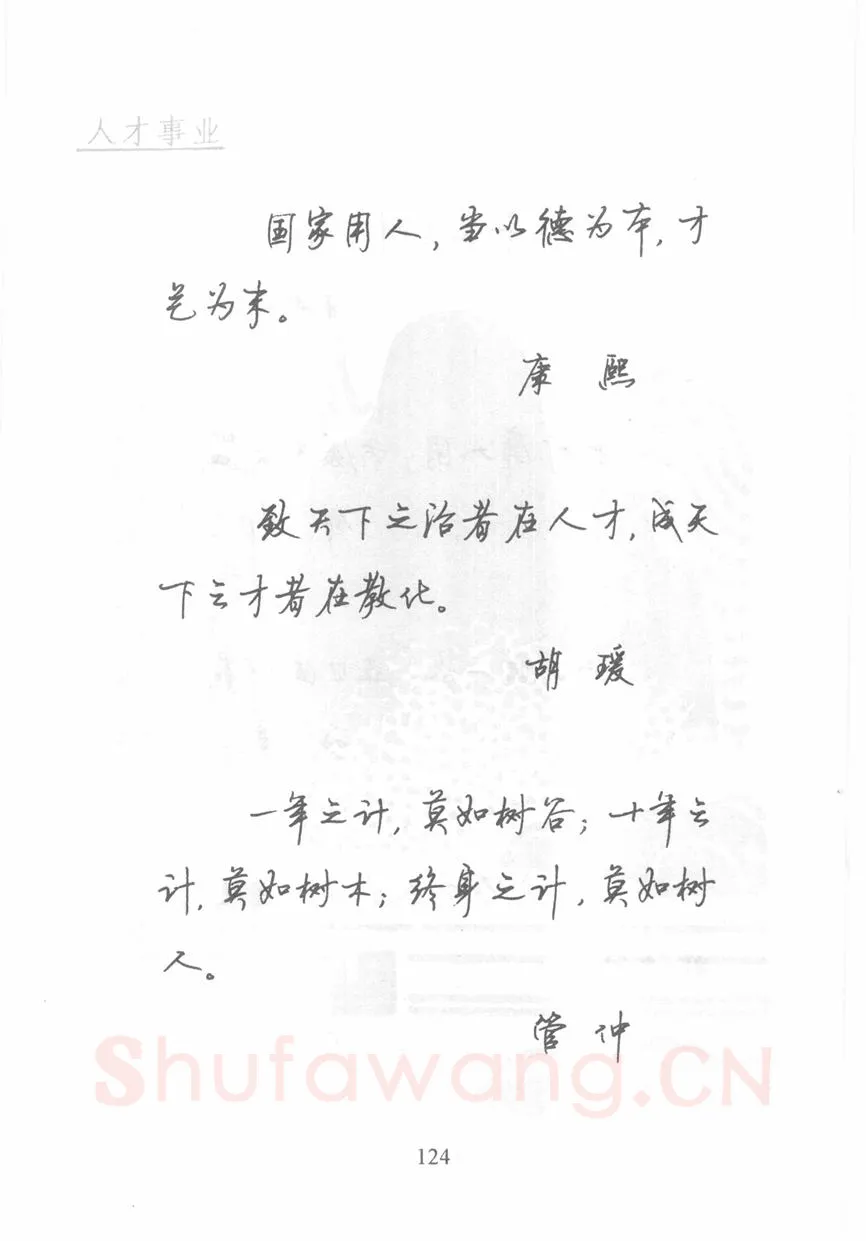 人才事业
国家用人，当以德为本，才
艺为末。
康 熙
致天下之治者在人才，成天
下之才者在教化。
胡 瑗
一年之计，莫如树谷；十年之
计，莫如树木；终身之计，莫如树
人。
管 仲
Shufawang.CN
124